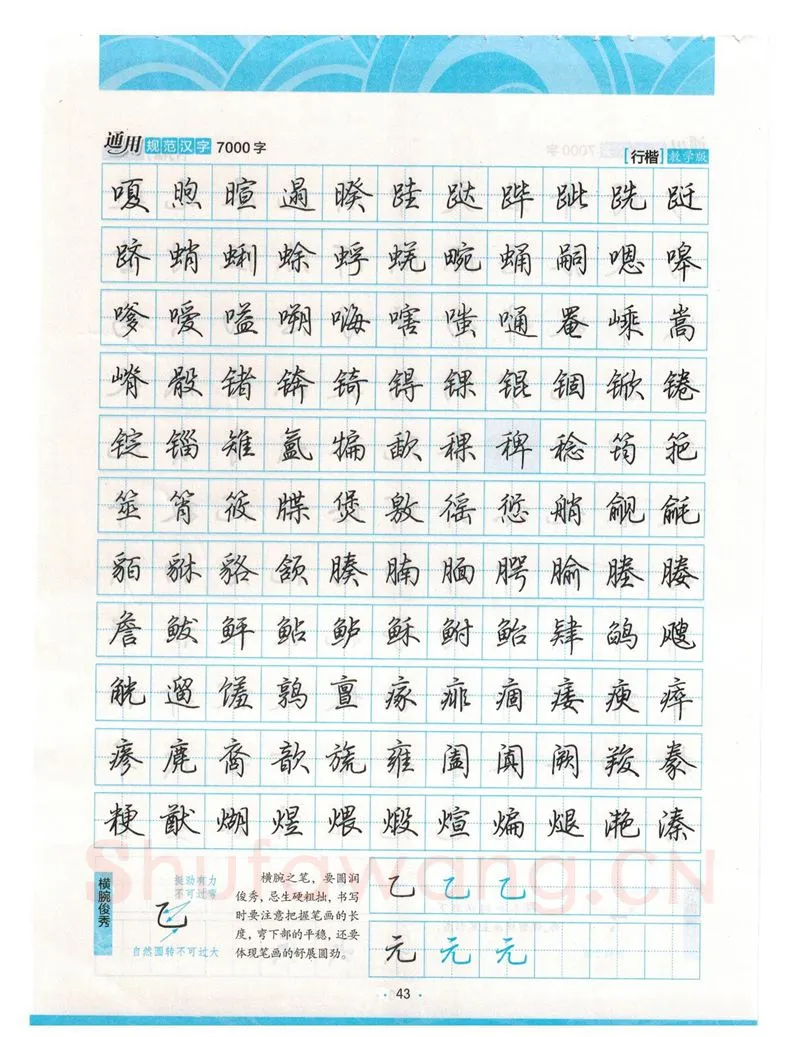 通用规范汉字 7000字 [行楷] 教学版
嗄 煦 暄 遢 暌 跬 跶 跸 跐 跣 跹
跻 蛸 蜊 蜍 蜉 蜣 畹 蛹 嗣 嗯 嗥
嗲 嗳 嗌 嗍 嗨 嗐 嗤 嗵 罨 嵊 嵩
嵴 骰 锗 锛 锜 锝 锞 锟 锢 锨 锩
锭 锱 雉 氲 犏 歃 稞 稗 稔 筠 筢
筮 筲 筱 牒 煲 敫 徭 愆 艄 觎 毹
貊 貅 貉 颔 腠 腩 腼 腭 腧 塍 媵
詹 鲅 鲆 鲇 鲈 稣 鲋 鲐 肄 鹐 飕
觥 遛 馐 鹑 亶 瘃 痱 痼 痿 瘐 瘁
瘆 麂 裔 歆 旒 雍 阖 阗 阙 羧 豢
粳 猷 煳 煜 煨 煅 煊 煸 煺 滟 溱
横腕俊秀
挺劲有力
不可过弯
乙
自然圆转不可过大
横腕之笔，要圆润
俊秀，忌生硬粗拙，书写
时要注意把握笔画的长
度，弯下部的平稳，还要
体现笔画的舒展圆劲。
乙 乙 乙
元 元 元
Shufawang.CN
· 43 ·